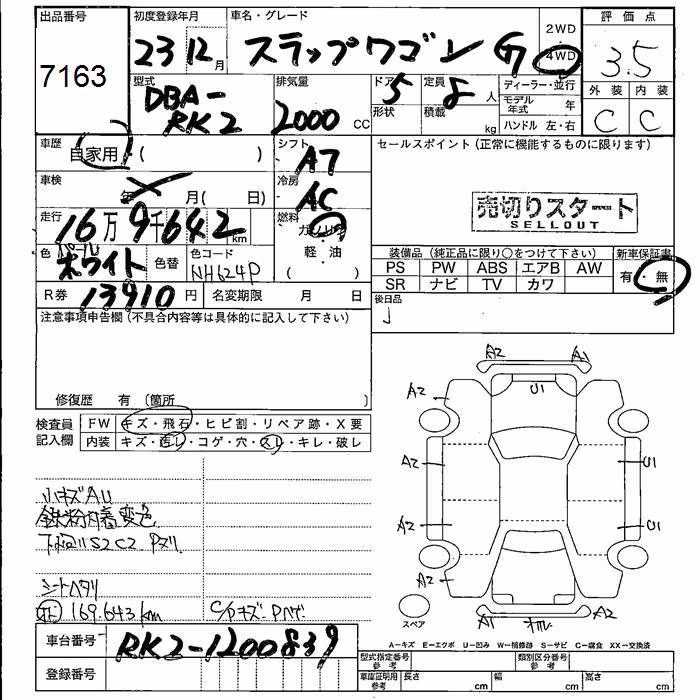 出品番号
7163
初度登録年月
23 12月
車名・グレード
スラップワゴン G
2WD
4WD
評価点
3.5
外装 内装
C C
型式
DBA-
RK2
排気量
2000 CC
ドア 5
形状
定員 8 人
積載 kg
ディーラー・並行
モデル年式 年
ハンドル 左・右
車歴
自家用 ( )
シフト
A7
セールスポイント (正常に機能するものに限ります)
売切りスタート
SELLOUT
車検
年 月( 日)
冷房
AC
走行
16万9千642 km
燃料
ガソリン
軽・油
( )
色
パール
ホワイト
色替
色コード
NH624P
装備品 (純正品に限り○をつけて下さい)
PS PW ABS エアB AW
SR ナビ TV カワ
新車保証書
有・無
R券 13910 円
名変期限 月 日
後日品
注意事項申告欄 (不具合内容等は具体的に記入して下さい)
修復歴 有 〔箇所 〕
検査員
記入欄
FW キズ・飛石・ヒビ割・リペア跡・X要
内装 キズ・汚レ・コゲ・穴・スレ・キレ・破レ
小キズAU
鉄粉 変色
S2C2
シートヘタリ
169.643km
C/Pキズ・Pハゲ
A2 A1
A2 U1 A2
A2 U1
A2 U1
A2 A2
A1 A2
スペア
A-キズ E-エクボ U-凹み W-補修跡 S-サビ C-腐食 XX-交換済
車台番号 RK2-1200839
登録番号
型式指定番号
参考
類別区分番号
参考
車庫証明用
参考
長さ cm 幅 cm 高さ cm